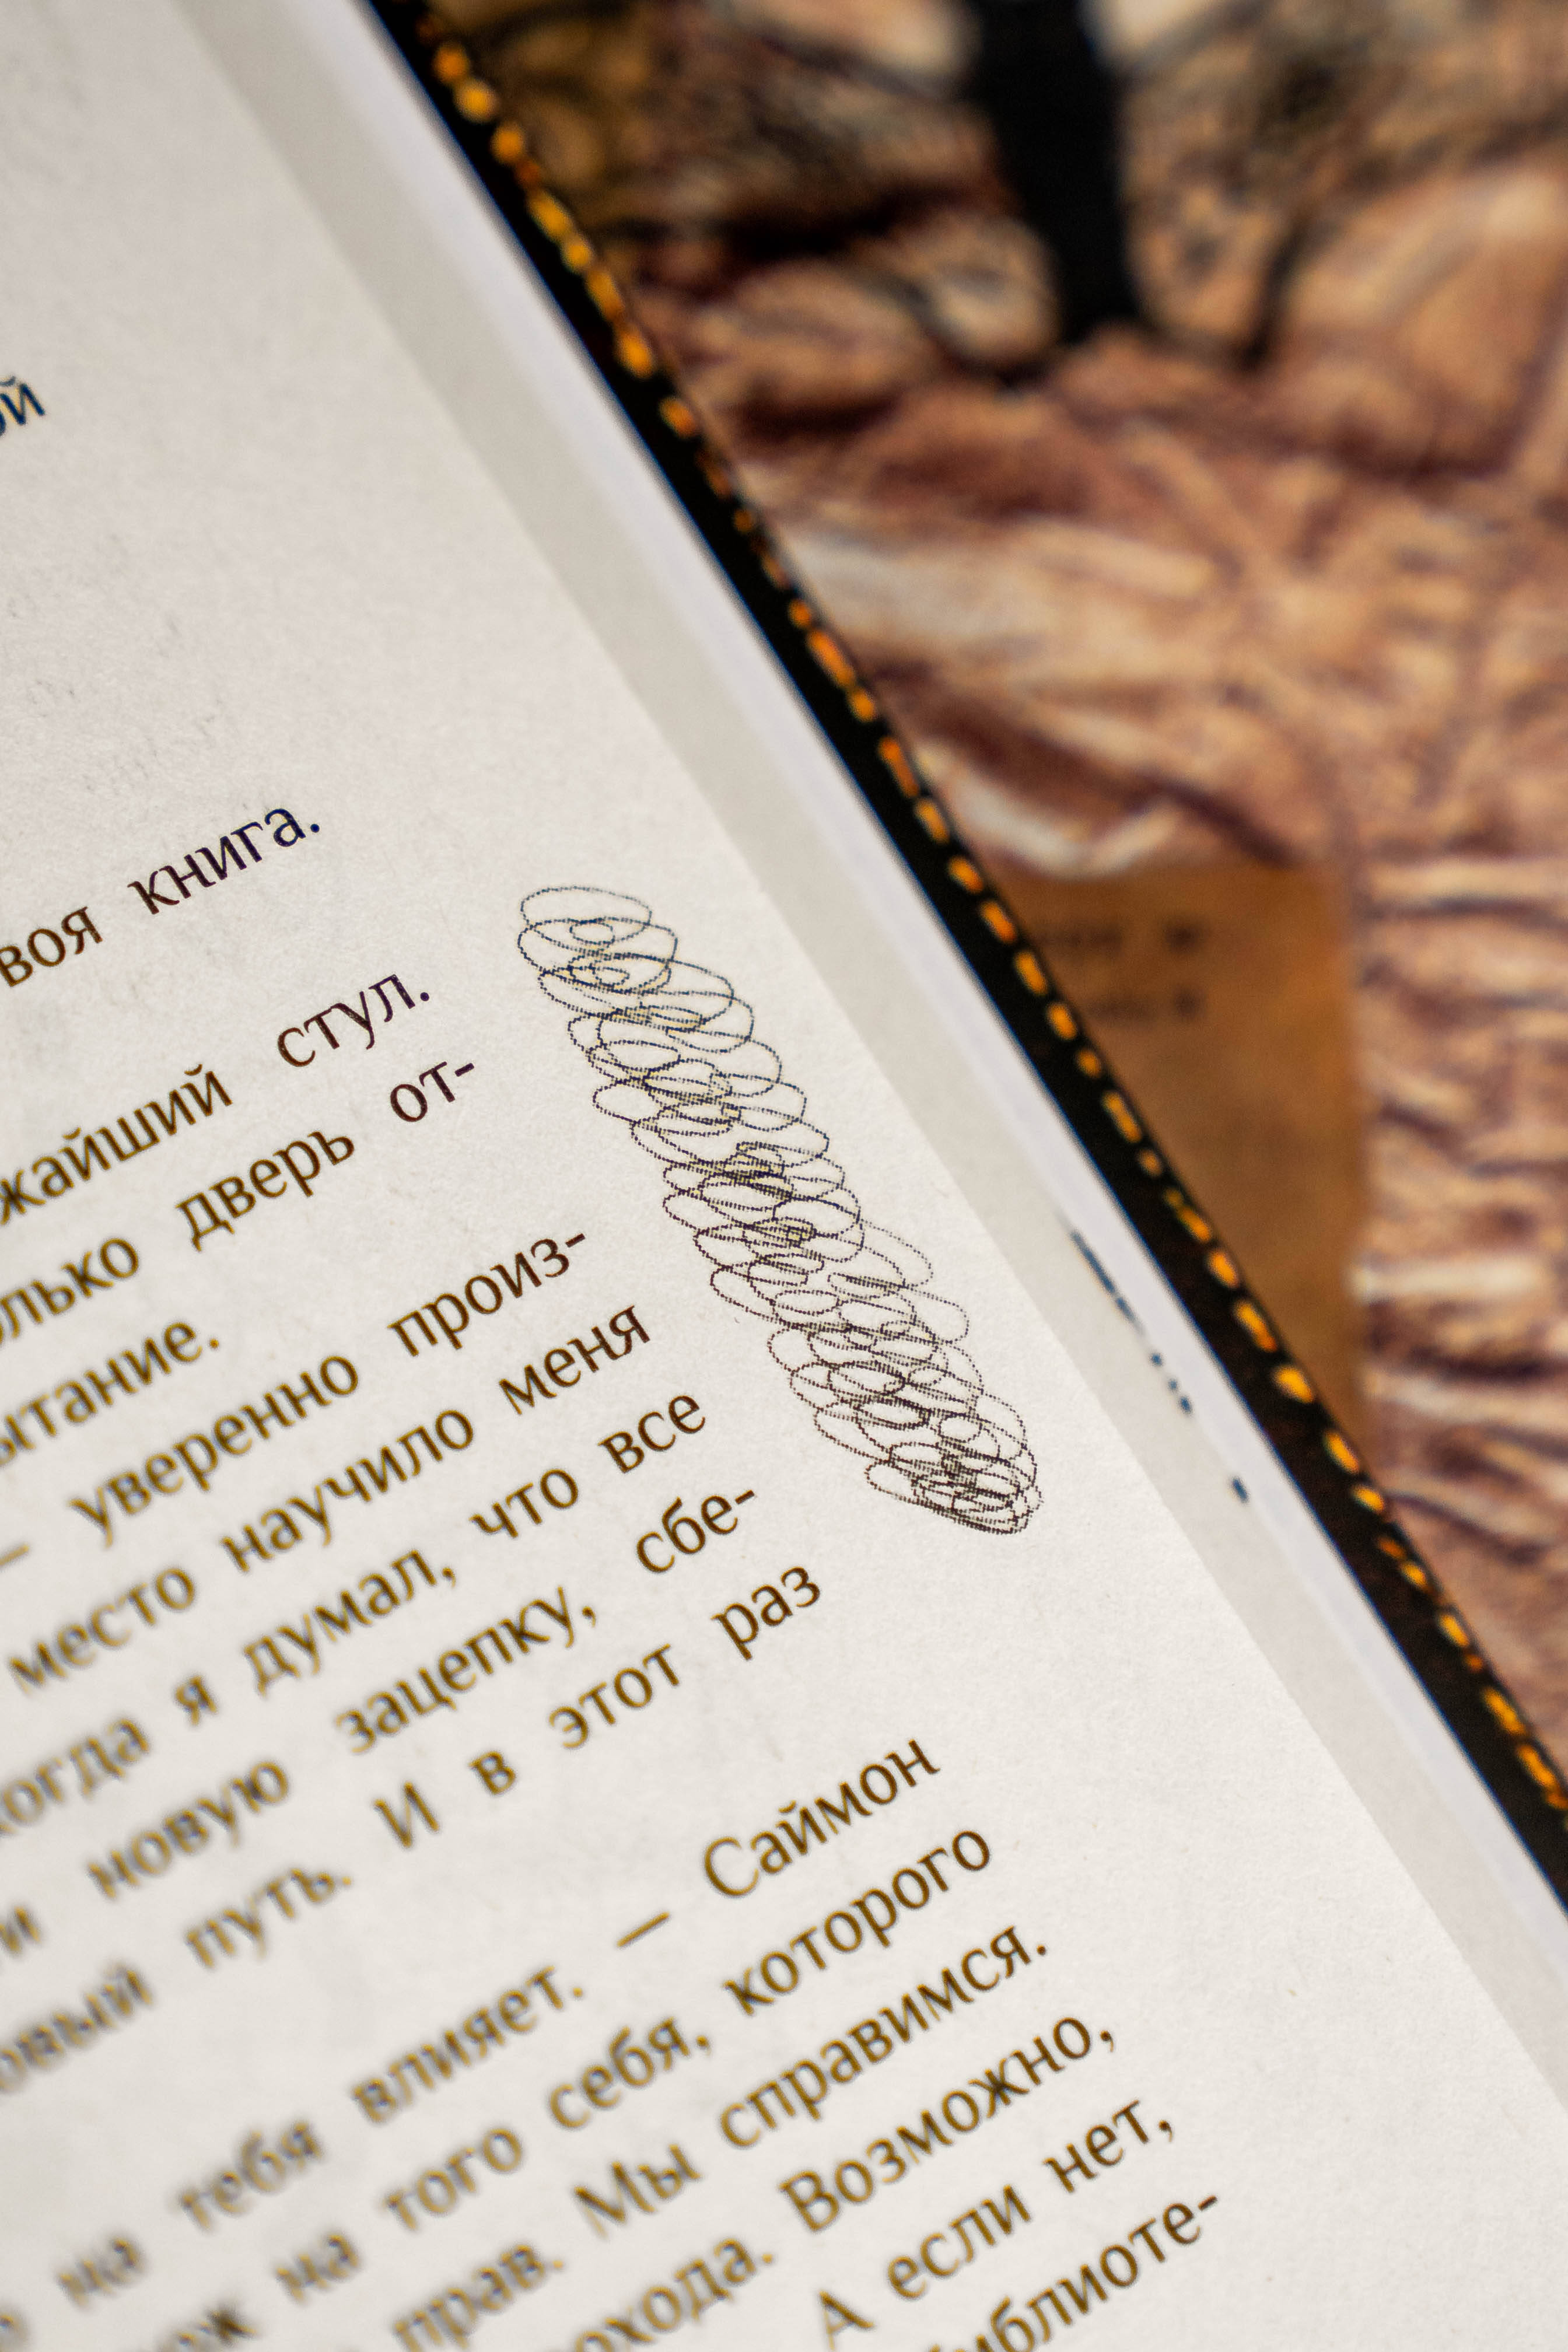 ой
воя книга.
жайший стул.
олько дверь от-
ытание.
— уверенно произ-
место научило меня
когда я думал, что все
и новую зацепку, сбе-
овый путь. И в этот раз
на тебя влияет. — Саймон
ж на того себя, которого
прав. Мы справимся.
охода. Возможно,
А если нет,
иблиоте-